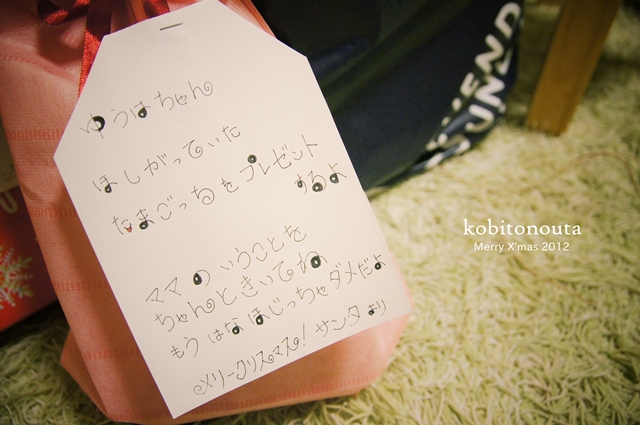 ゆうはちゃん
ほしがっていた
たまごっちをプレゼント
するよ
ママのいうことを
ちゃんときいてね
もうはなほじっちゃダメだよ
メリークリスマス!サンタより
kobitonouta
Merry X'mas 2012